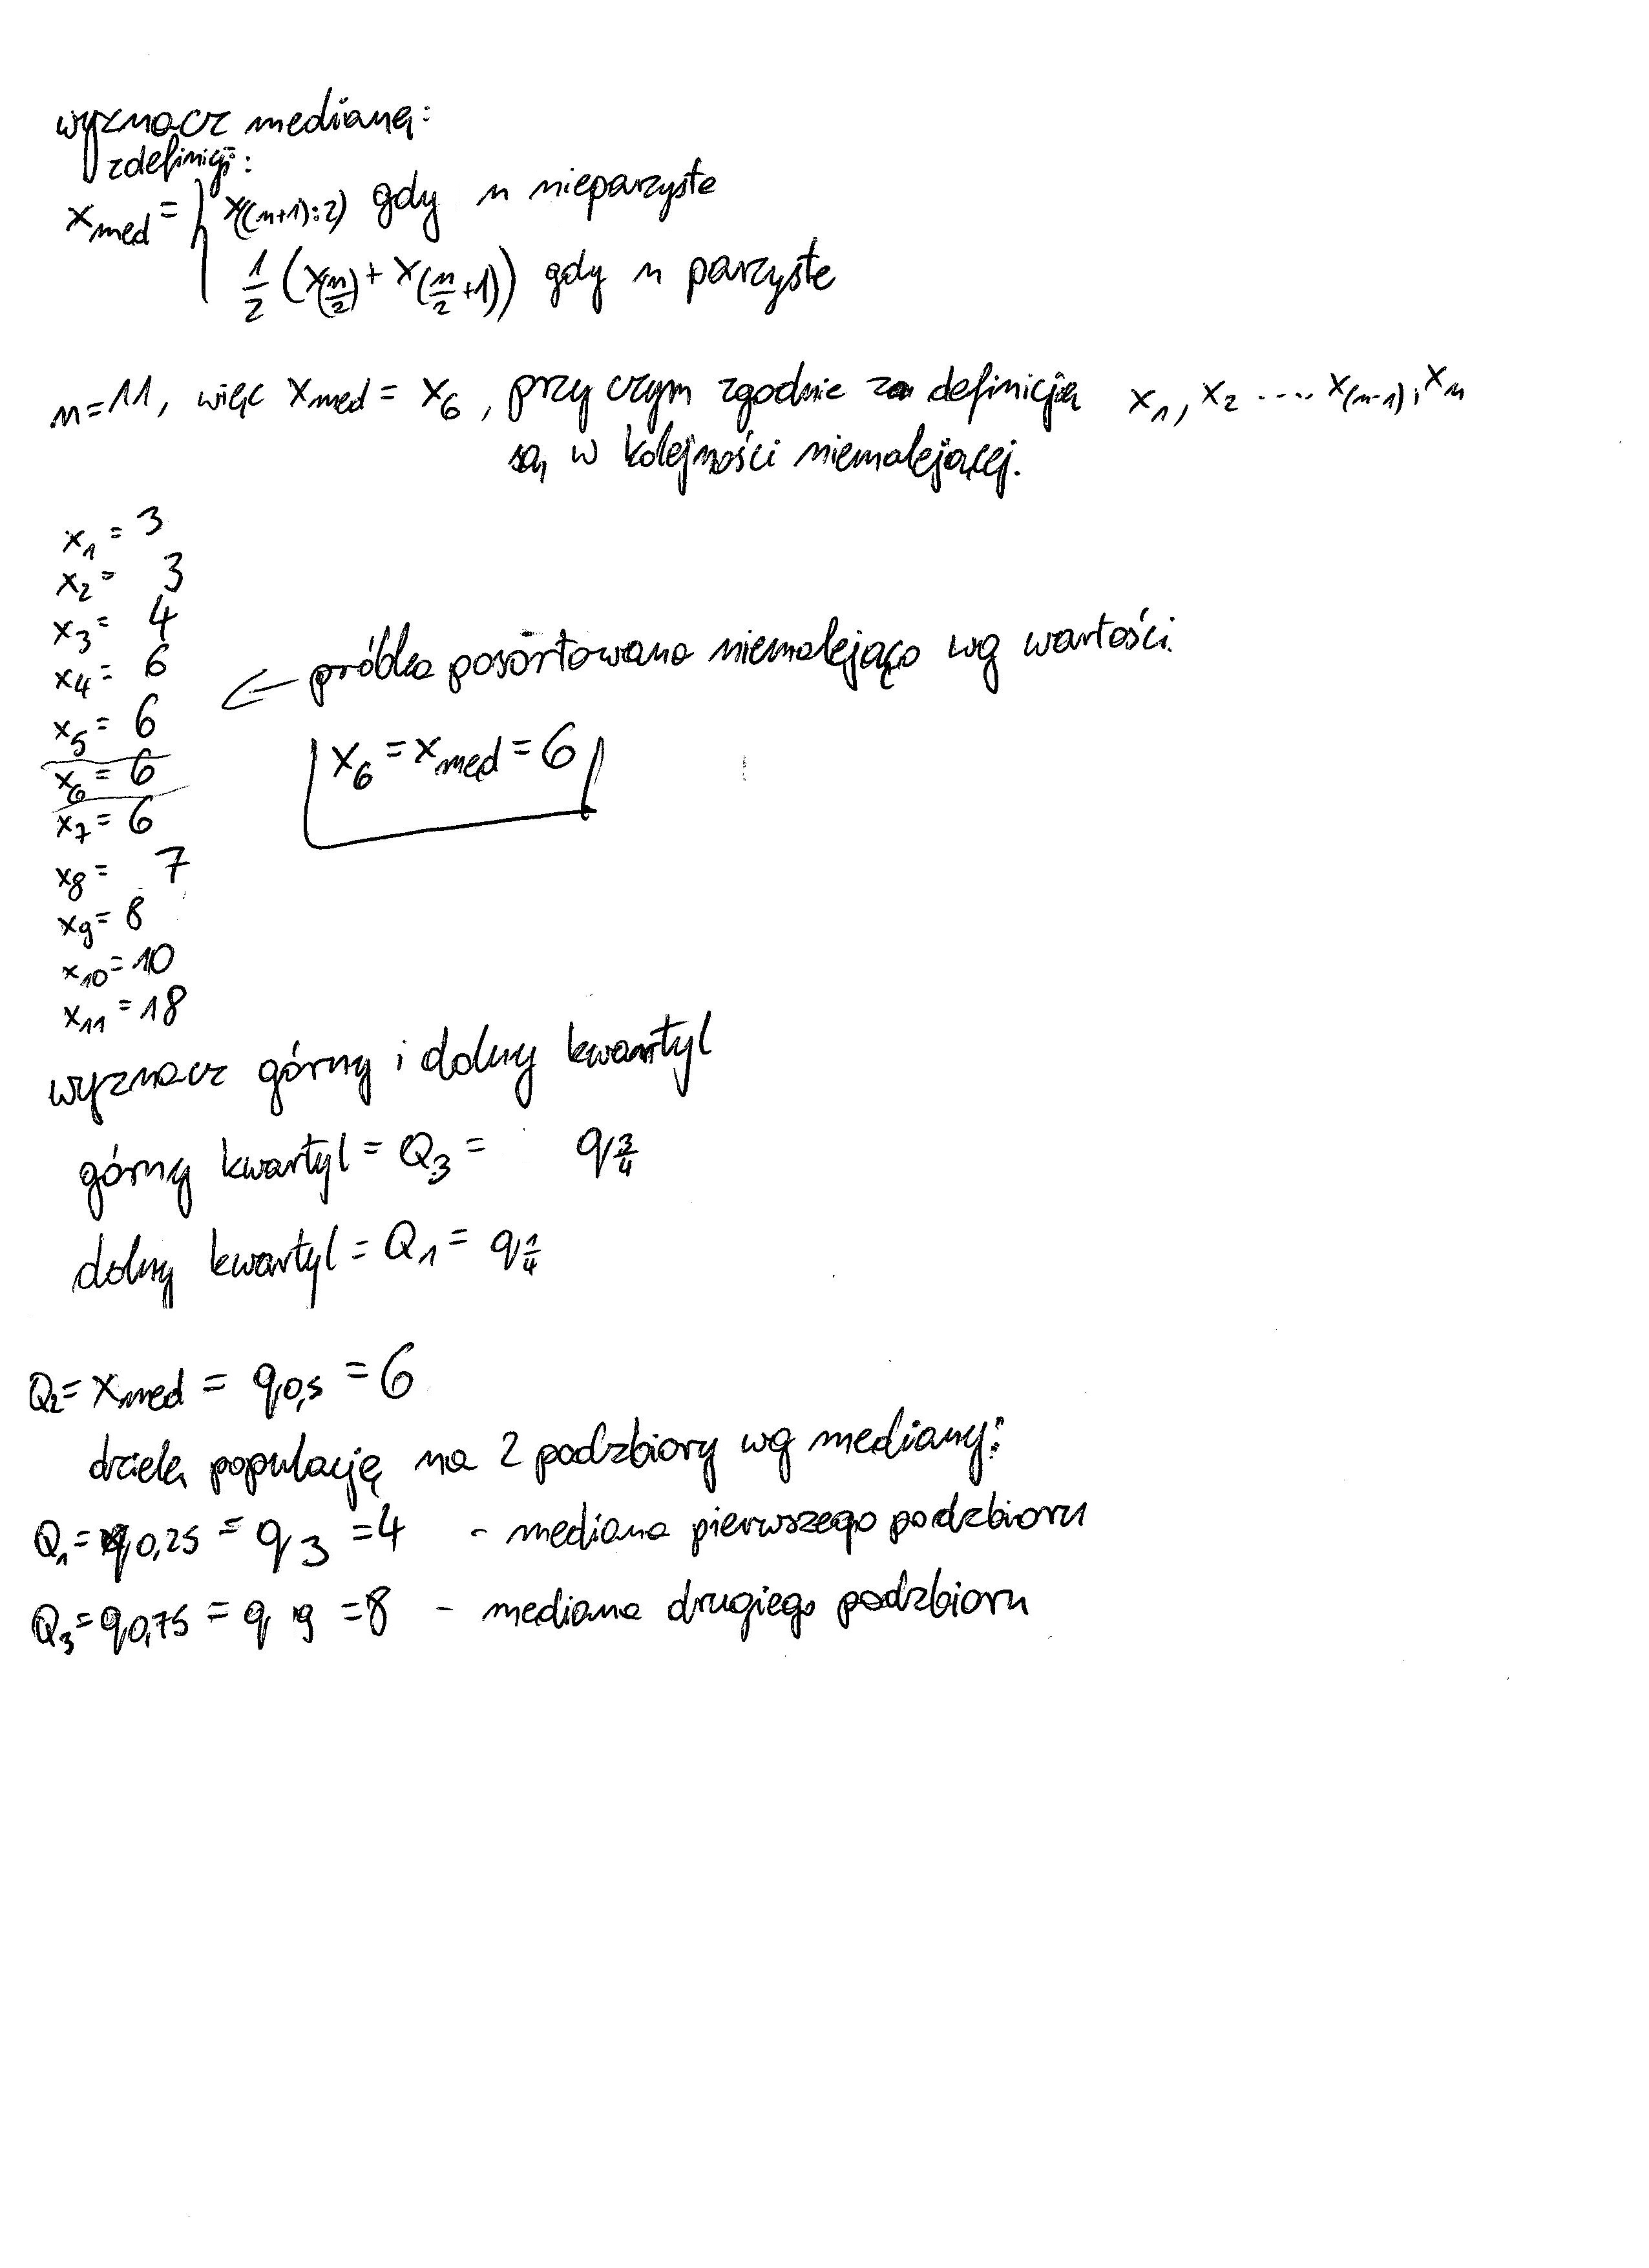 wyznacz medianę:
z definicji:
x_med = { x((n+1):2) gdy n nieparzyste
1/2 (x(n/2) + x(n/2+1)) gdy n parzyste
n=11, więc x_med = x_6, przy czym zgodnie z definicją x_1, x_2 .... x_(n-1), x_n
są w kolejności niemalejącej.
x_1 = 3
x_2 = 3
x_3 = 4
x_4 = 6
x_5 = 6
x_6 = 6
x_7 = 6
x_8 = 7
x_9 = 8
x_10 = 10
x_11 = 18
← próbka posortowana niemalejąco wg wartości.
x_6 = x_med = 6
wyznacz górny i dolny kwartyl
górny kwartyl = Q_3 = q_3/4
dolny kwartyl = Q_1 = q_1/4
Q_2 = x_med = q_0,5 = 6
dzielę populację na 2 podzbiory wg mediany:
Q_1 = q_0,25 = q_3 = 4 - mediana pierwszego podzbioru
Q_3 = q_0,75 = q_9 = 8 - mediana drugiego podzbioru